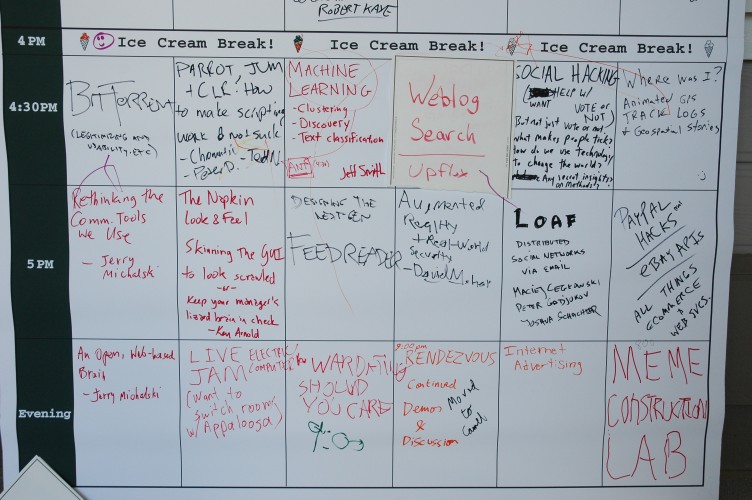 ROBERT KAYE
4 PM
Ice Cream Break!
Ice Cream Break!
Ice Cream Break!
4:30PM
BitTorrent
(LEGITIMIZING AND
USABILITY, ETC)
PARROT, JVM
+ CLR: How
to make scripting
work & not suck
- Chromatic
MACHINE
LEARNING
- Clustering
- Discovery
- Text classification
Jeff Smith
Weblog
Search
Upflux
SOCIAL HACKING
HELP W/
WANT VOTE OR
NOT)
But not just vote or not.
What makes people tick?
How do we use technology
to change the world?
Any secret insights
on Methods?
Where was I?
Animated GIS
TRACK LOGS
& Geospatial stories
:)
5 PM
Rethinking the
Comm. Tools
We Use
- Jerry
Michalski
The Napkin
Look & Feel
Skinning The GUI
to look scrawled
-or-
Keep your manager's
lizard brain in check
- Ken Arnold
DESIGNING THE
NEXT GEN
FEEDREADER
Augmented
Reality
+ Real-World
Security
- David
LOAF
DISTRIBUTED
SOCIAL NETWORKS
VIA EMAIL
MACIEJ CEGŁOWSKI
JOSHUA SCHACHTER
PAYPAL
HACKS
EBAY APIS
ALL THINGS
ECOMMERCE
& WEB SVCS.
Evening
An Open, Web-based
Brain
- Jerry Michalski
LIVE ELECTRIC/
JAM COMPUTER
(Want to
switch rooms
w/ Appaloosa)
WARDATING
SHOULD
YOU CARE
9:00 pm
RENDEZVOUS
Continued
Demos
&
Discussion
Moved
to
Internet
Advertising
MEME
CONSTRUCTION
LAB